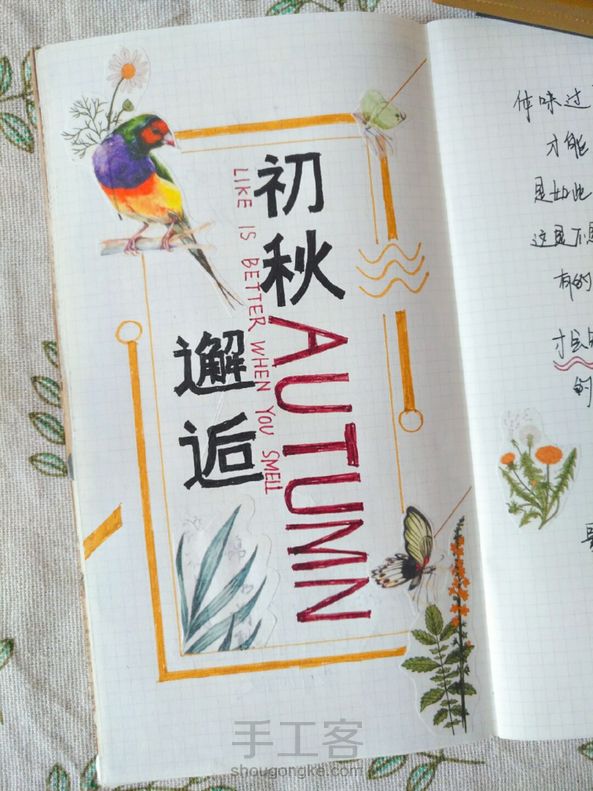 初秋
邂逅
AUTUMN
LIKE IS BETTER WHEN YOU SMELL
体味过
才能
是如此
这是不
有的
才会
的
手工客
shougongke.com